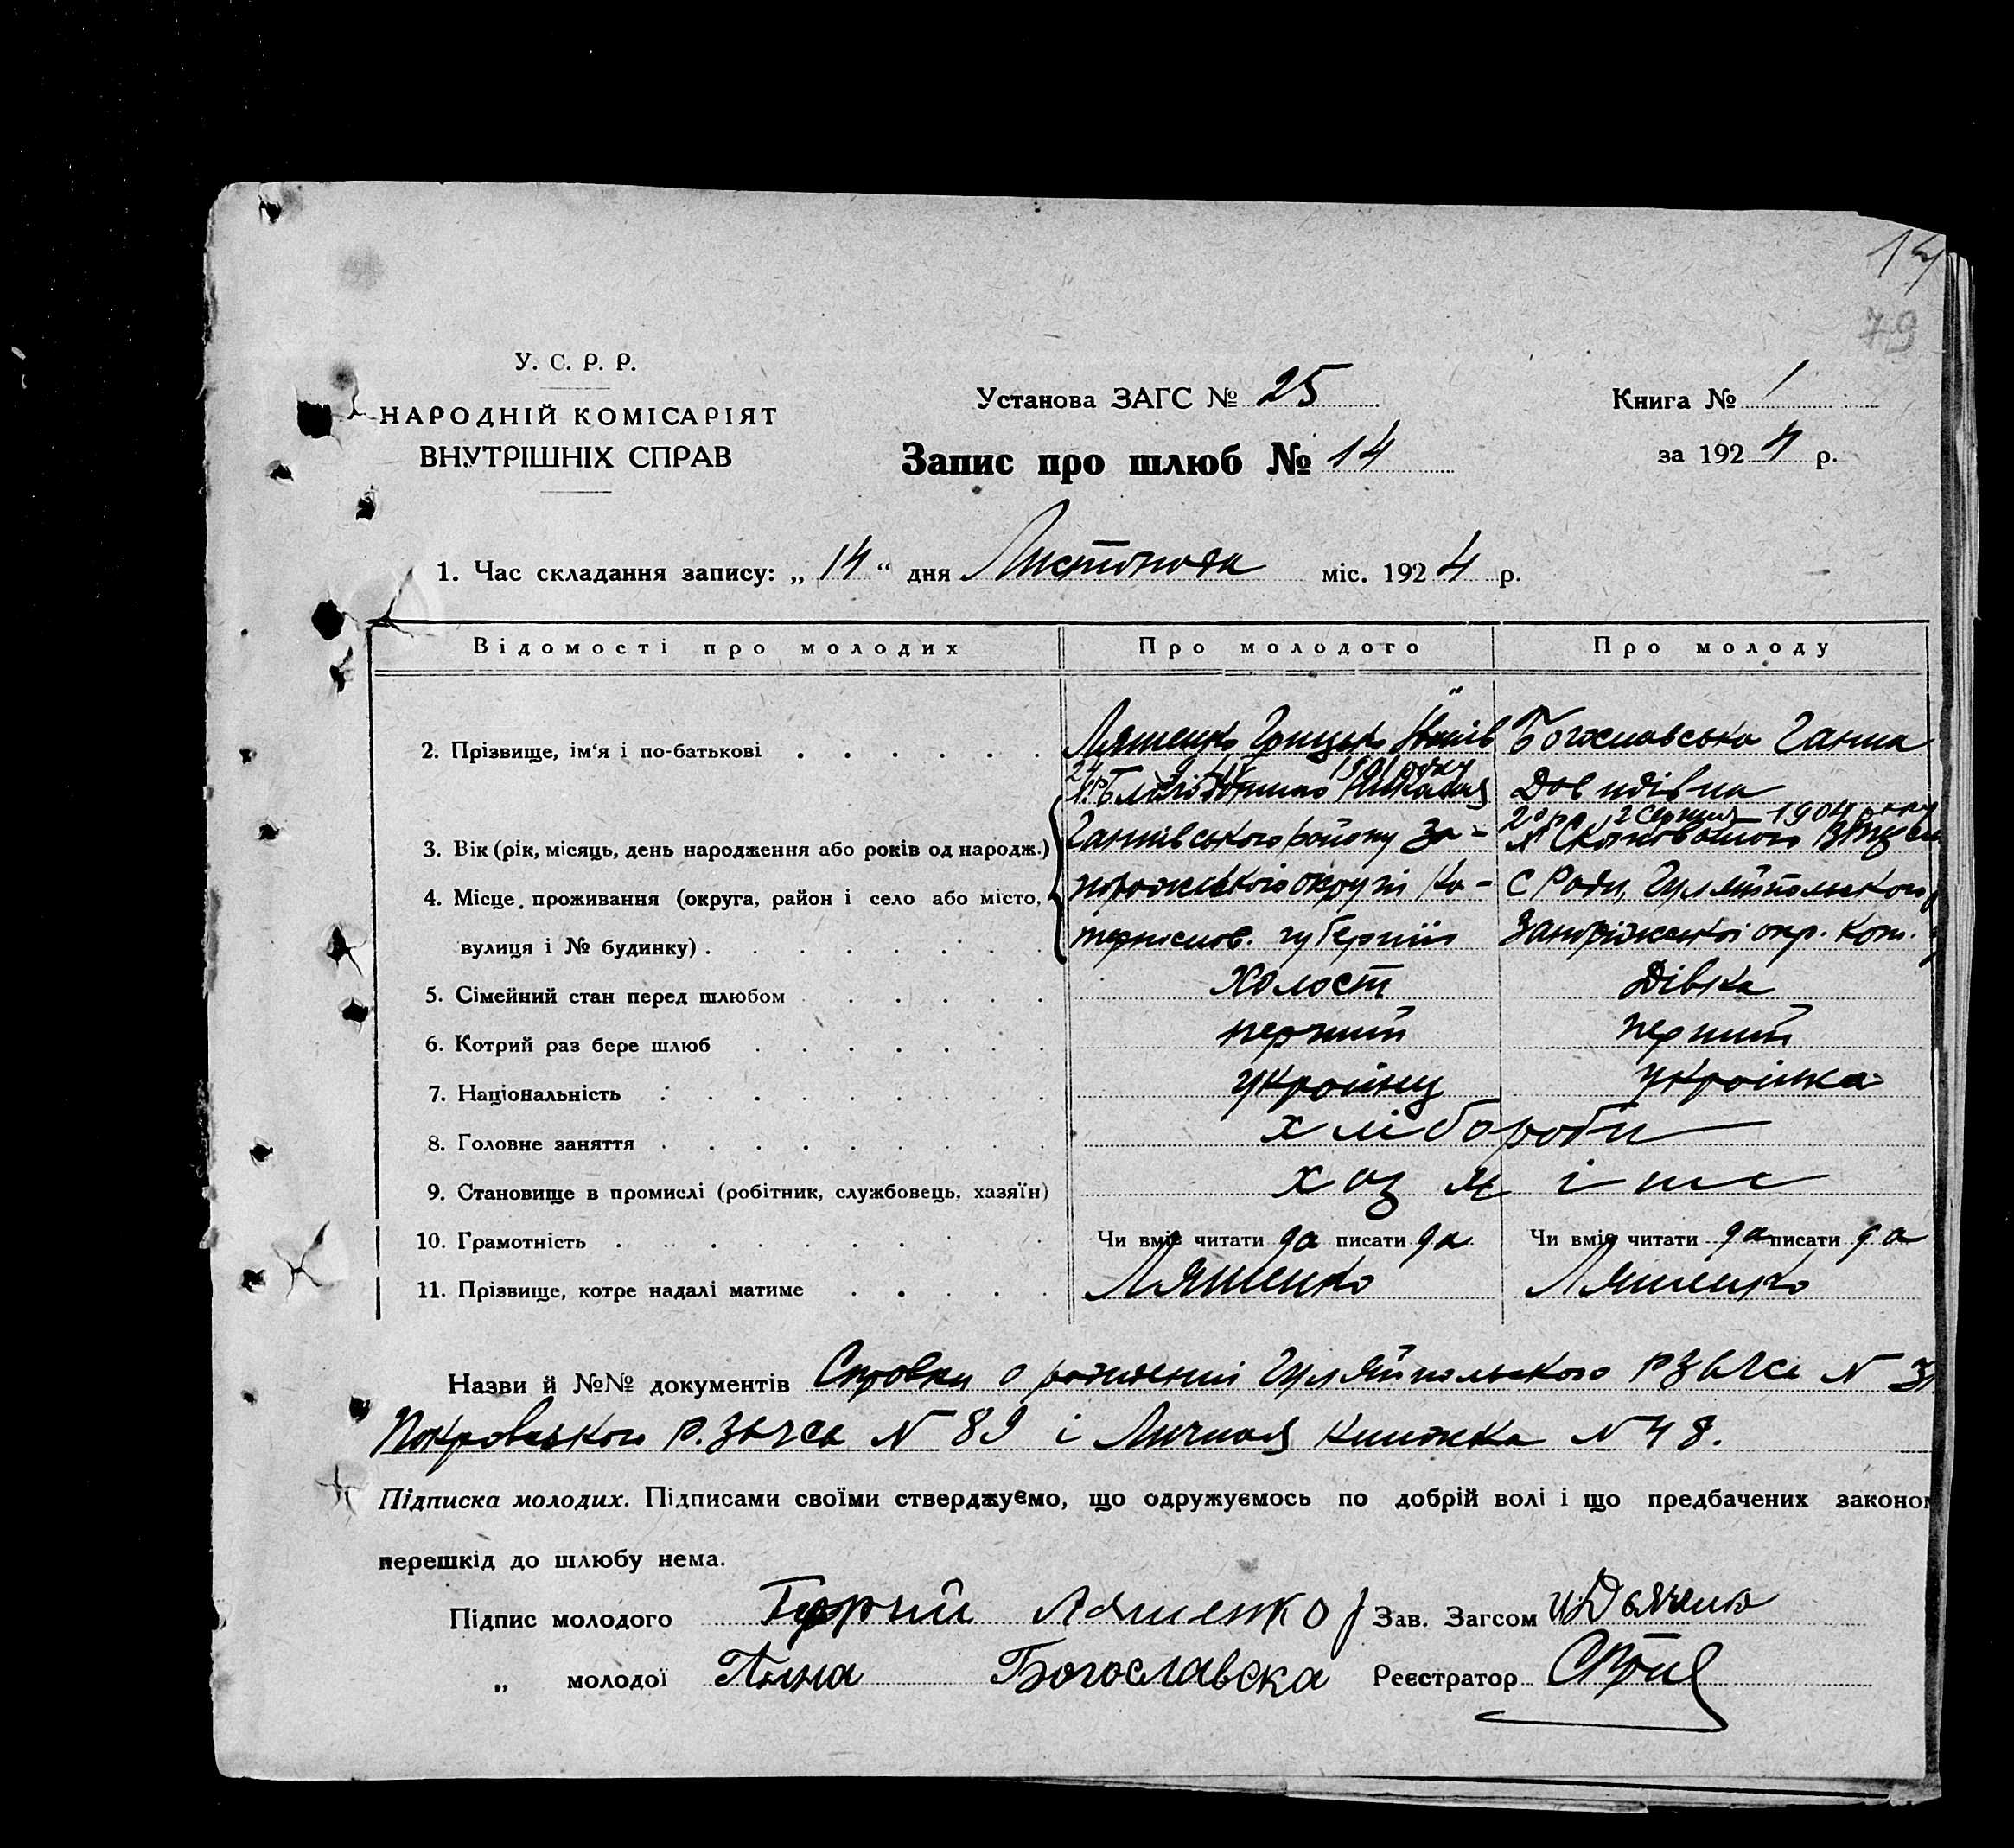 14
79
У. С. Р. Р.
НАРОДНІЙ КОМІСАРІЯТ
ВНУТРІШНІХ СПРАВ
Установа ЗАГС № 25
Запис про шлюб № 14
Книга № 1
за 1924 р.
1. Час складання запису: „ 14 “ дня Листопада міс. 1924 р.
Відомості про молодих Про молодого Про молоду
2. Прізвище, ім‘я і по-батькові Ляшенко Грицько Богославська Ганна
Довидівна
20 р. 2 Серпня 1904 року
3. Вік (рік, місяць, день народження або років од народж.) Ганнівського району За-
4. Місце проживання (округа, район і село або місто, порожського округи Ка- С Ради, Гуляйпольського
вулиця і № будинку) теринослов. губернии Запоріжської окр. Кат.
5. Сімейний стан перед шлюбом Холост Дівка
6. Котрий раз бере шлюб перший перший
7. Національність украинец украінка
8. Головне заняття хлібороби
9. Становище в промислі (робітник, службовець, хазяїн) хозяіне
10. Грамотність Чи вміє читати да писати да Чи вміє читати да писати да
11. Прізвище, котре надалі матиме Ляшенко Ляшенко
Назви й №№ документів Справки о рождении Гуляйпольского РЗАГСа N
Покровського Р.ЗАГСа N 89 і Личная книжка N 48.
Підписка молодих. Підписами своїми стверджуємо, що одружуємось по добрій волі і що предбачених законом
перешкід до шлюбу нема.
Підпис молодого Ляшенко Зав. Загсом
„ молодої Анна Богославска Реєстратор